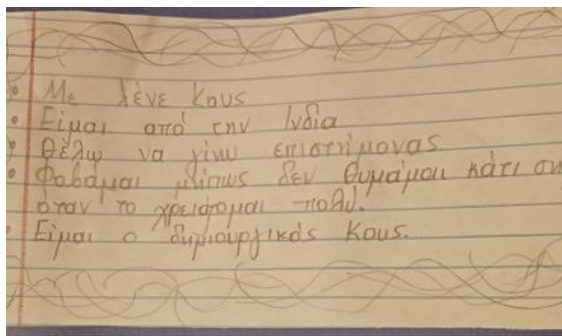 • Με λένε Κους
• Είμαι από την Ινδία
• Θέλω να γίνω επιστήμονας.
• Φοβάμαι μήπως δεν θυμάμαι κάτι
όταν το χρειάζομαι πολύ.
• Είμαι ο δημιουργικός Κους.